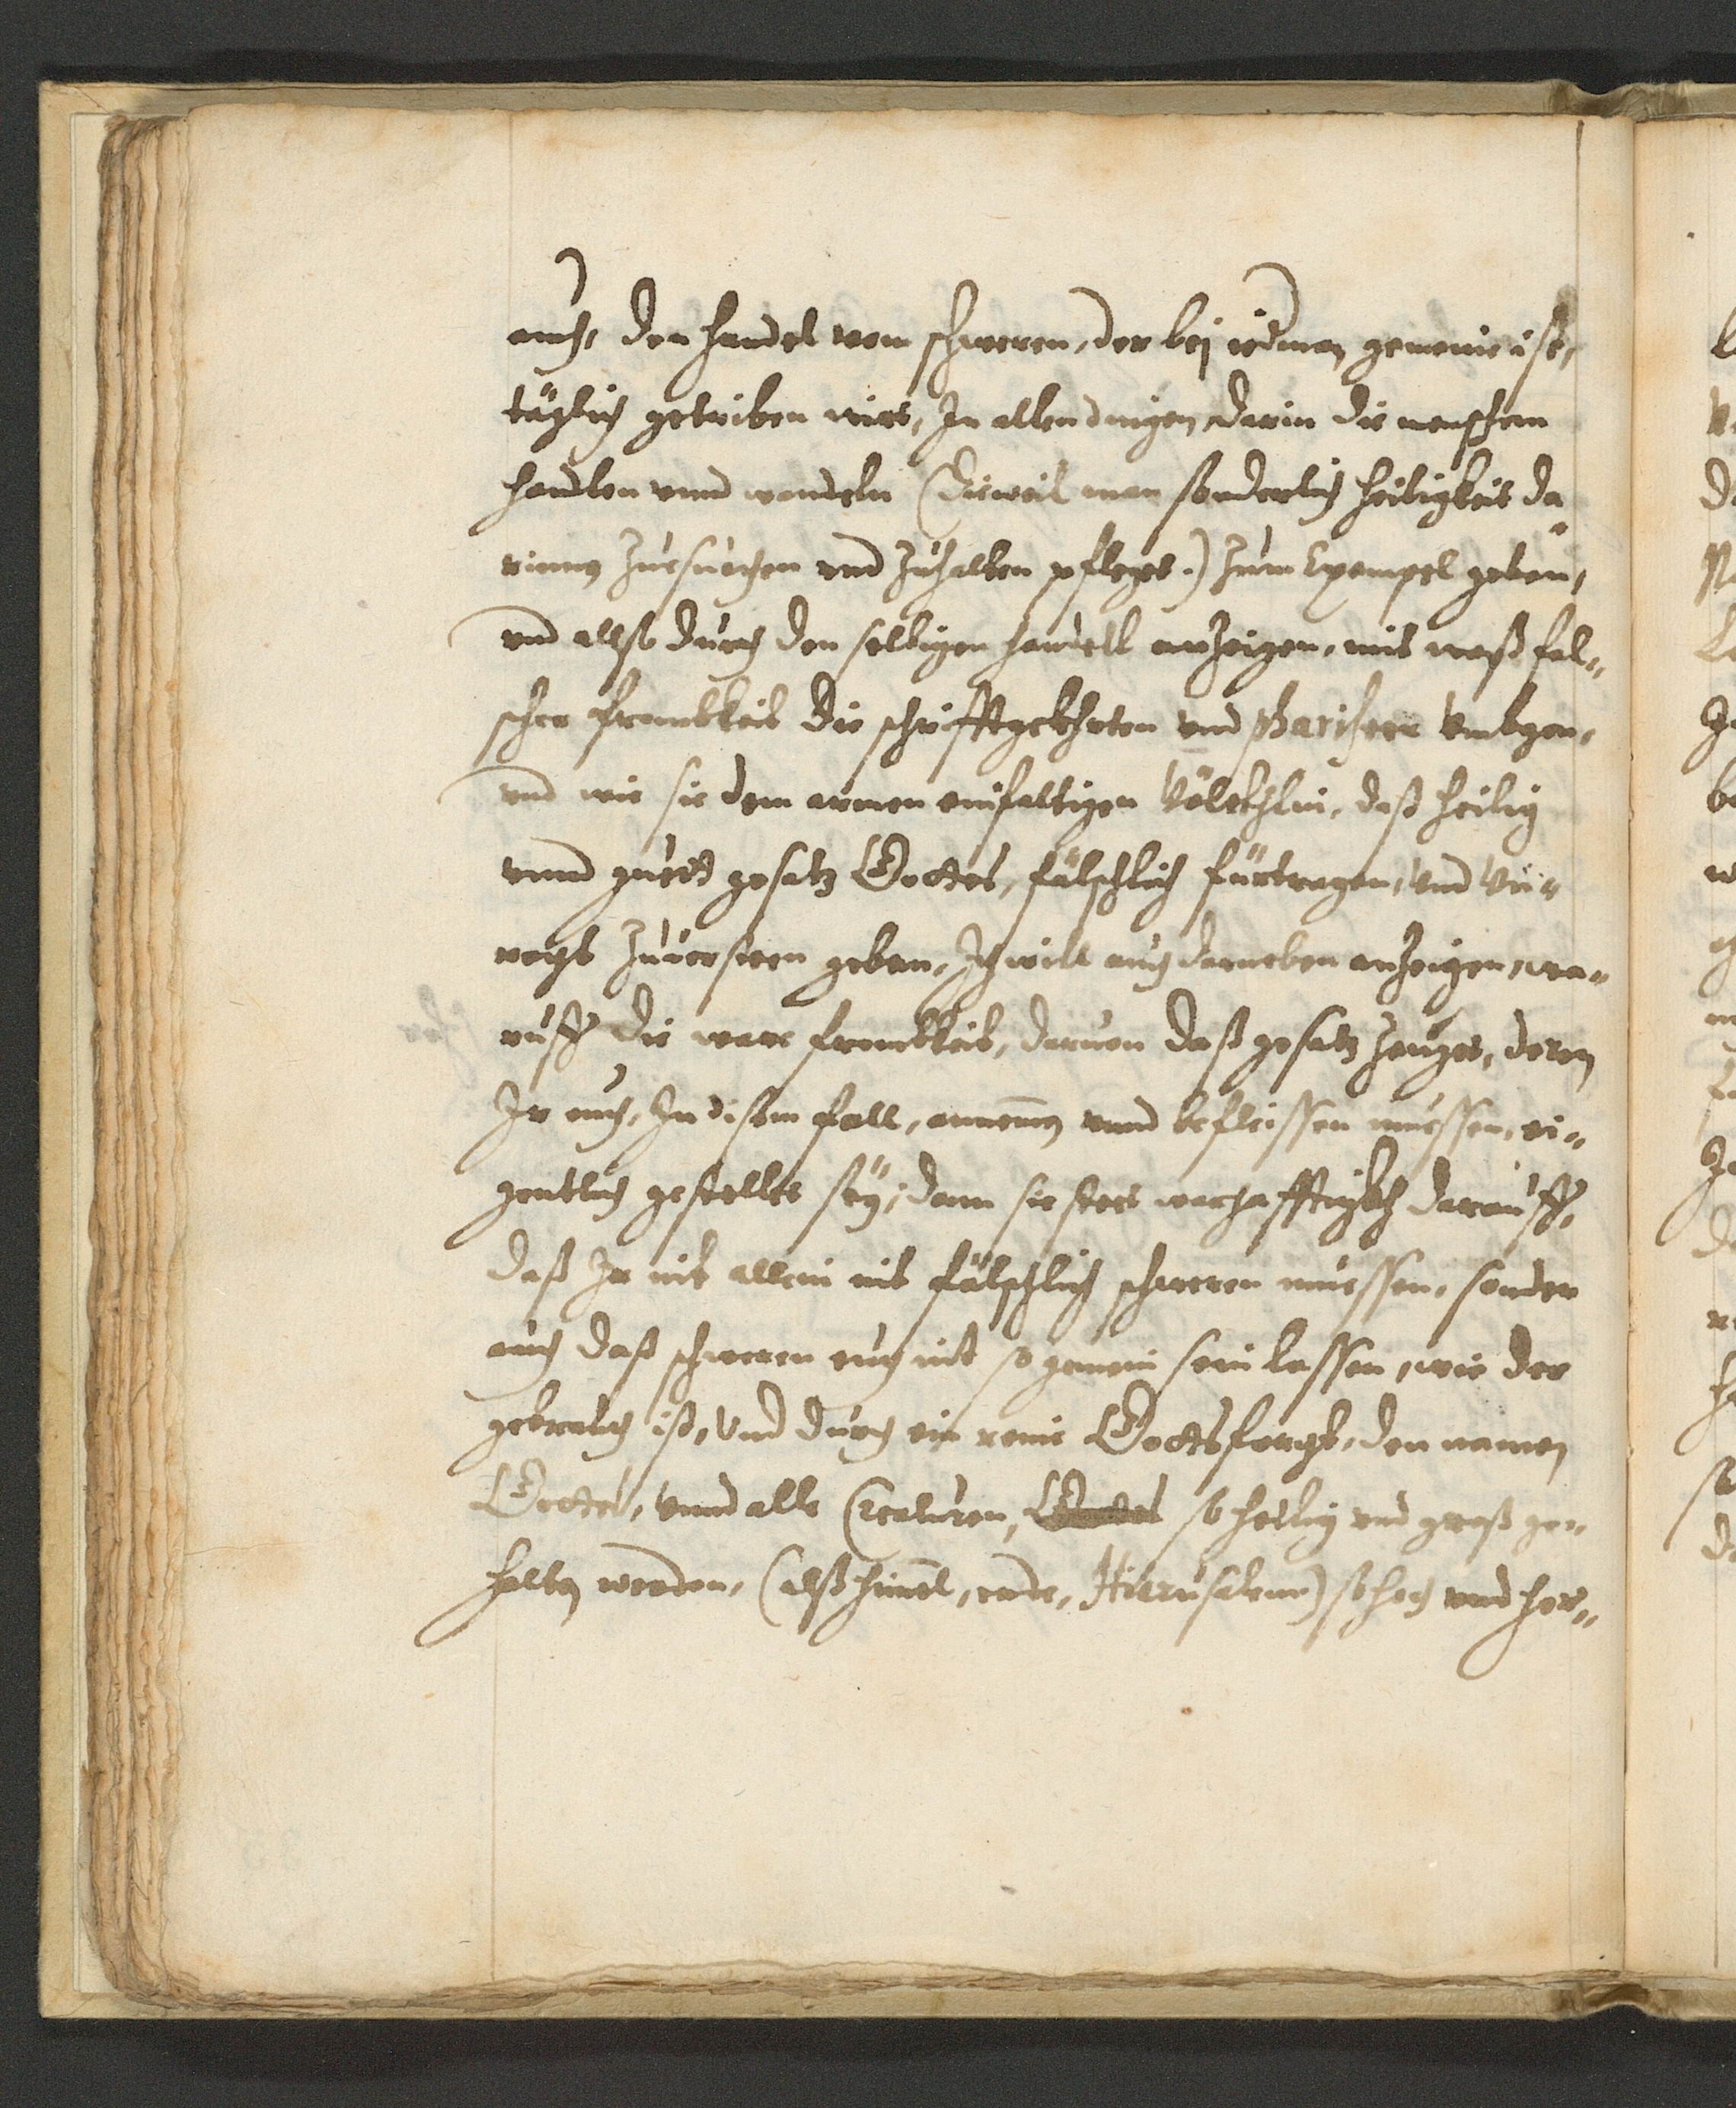 auch, den handel vom schweren, der bej iedman gemeine ist,
täglich getriben wirt, In allen dingen, darin die menschenn
handlen vnnd wandeln (Dieweil man sonderlich heiligkeit da
rinnen zuesuechen vnd zuhalten pfleget.) zum Exempel geben,
vnd allso durch den selbigen handell anzeigen, mit waß fal„
scher frombkeit die schrifftgelehrten vnd phariseer vmbgon,
vnd wie sie dem armen einfaltigen völckhlin, daß heilig
vnnd guett gesatz Gottes, fälschlich fürtragen, vnd vn„
recht zuuersteen geben, Ich will auch darneben anzeigen, wa„
ruff die ware frombkeit, daruon daß gesatz zeuget, deren
Ir euch, In disem fall, annemen vnnd befleissen muessen, ei„
gentlich gestellet seÿ, dann sie steet warhafftigklich darauff,
daß Ir nit allein nit fälschlich schweren muessen, sonder
auch daß schweren euch nit so gemein sein lassen, wie der
gebrauch ist, vnd durch ein reine Gottsforcht, den namen
Gottes, vnnd alle Creaturen, Gottes so heilig vnd groß ge„
halten werden, (alß himel, erde, Hierusalem) so hoch vnd her„